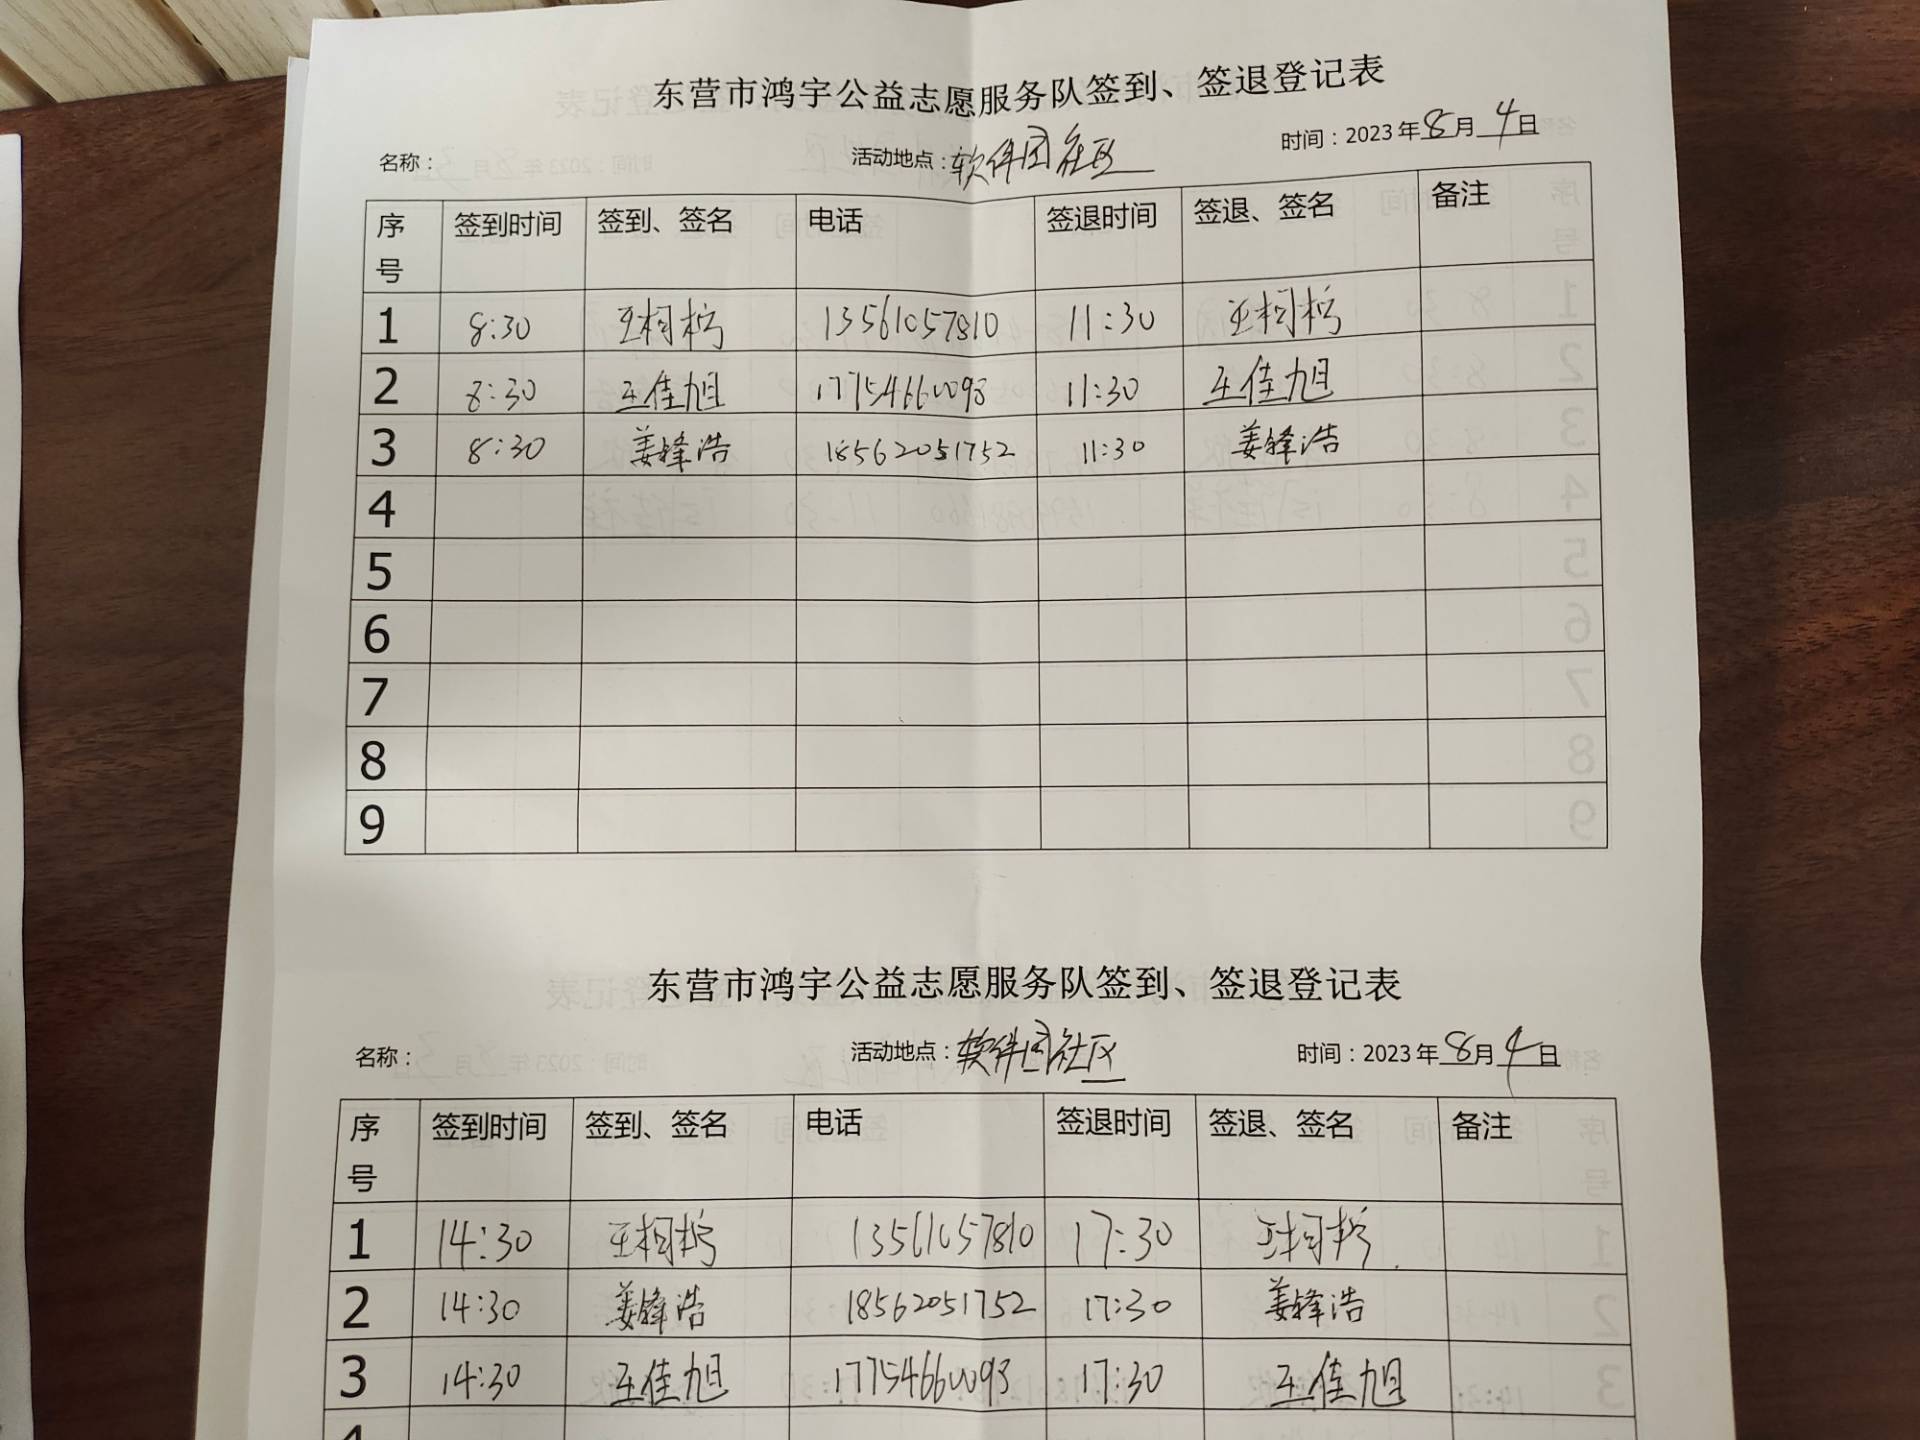 东营市鸿宇公益志愿服务队签到、签退登记表
名称： 活动地点：软件园社区 时间：2023年8月4日
序号 签到时间 签到、签名 电话 签退时间 签退、签名 备注
1 8:30 王柯柠 13561057810 11:30 王柯柠
2 8:30 王佳旭 17754660093 11:30 王佳旭
3 8:30 姜锋浩 18562051752 11:30 姜锋浩
4
5
6
7
8
9
东营市鸿宇公益志愿服务队签到、签退登记表
名称： 活动地点：软件园社区 时间：2023年8月4日
序号 签到时间 签到、签名 电话 签退时间 签退、签名 备注
1 14:30 王柯柠 13561057810 17:30 王柯柠
2 14:30 姜锋浩 18562051752 17:30 姜锋浩
3 14:30 王佳旭 17754660093 17:30 王佳旭
4